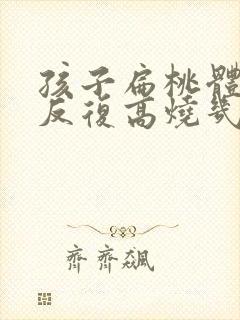 孩子扁桃體
反復高燒幾
齊齊飆